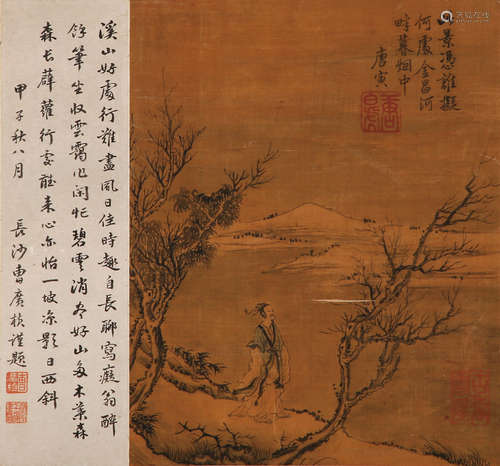 山景憑誰擬
何處金昌河
畔暮烟中
唐寅
溪山好處行難盡風日佳時趣自長聊寫癡翁醉
餘筆坐收雲靄作閑忙碧雲消盡好山多木葉森
森長薜蘿行來心亦怡一坡凉影日西斜
甲子秋八月 長沙曹廣楨謹題